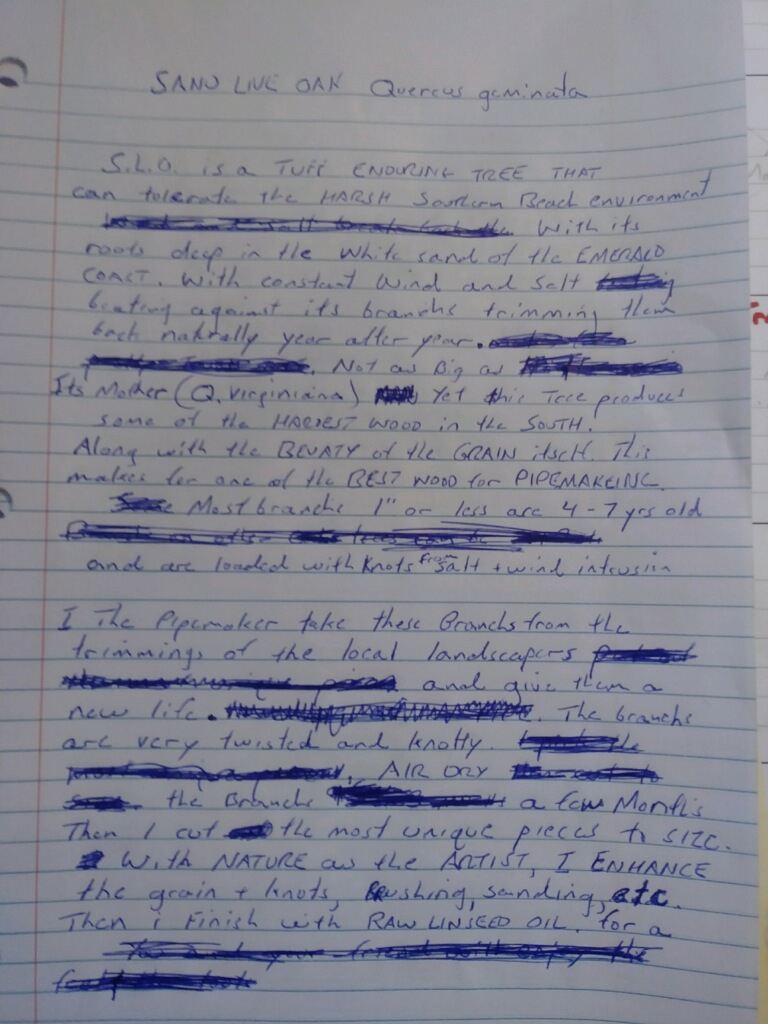 SAND LIVE OAK Quercus geminata
S.L.O. is a TUFF ENDURING TREE THAT
can tolerate the HARSH Southern Beach environment
With its
roots deep in the White sand of the EMERALD
COAST. With constant Wind and Salt
beating against its branchs trimming them
back naturally year after year.
Not as Big as
Its Mother (Q. virginiaina) Yet this Tree produces
some of the HARDEST WOOD in the SOUTH.
Along with the BEUATY of the GRAIN itself. This
makes for one of the BEST WOOD for PIPEMAKEING.
Most branchs 1" or less are 4-7 yrs old
and are loaded with Knots from Salt + wind intrusiin
I The Pipemaker take these Branchs from the
trimmings of the local landscapers
and give them a
new life. The branchs
are very twisted and knotty.
AIR DRY
the Branchs a few Months
Then I cut the most unique pieces to SIZE.
With NATURE as the ARTIST, I ENHANCE
the grain + knots, Brushing, sanding, etc.
Then i Finish with RAW LINSEED OIL. for a